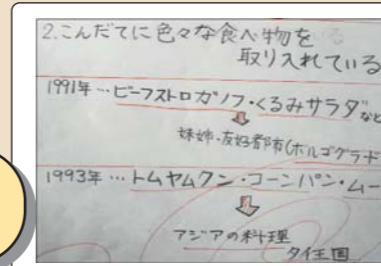 2.こんだてに色々な食べ物を
取り入れている
1991年…ビーフストロガノフ・くるみサラダなど
姉妹・友好都市(ボルゴグラード
1993年…トムヤムクン・コーンパン・ムー
アジアの料理
タイ王国